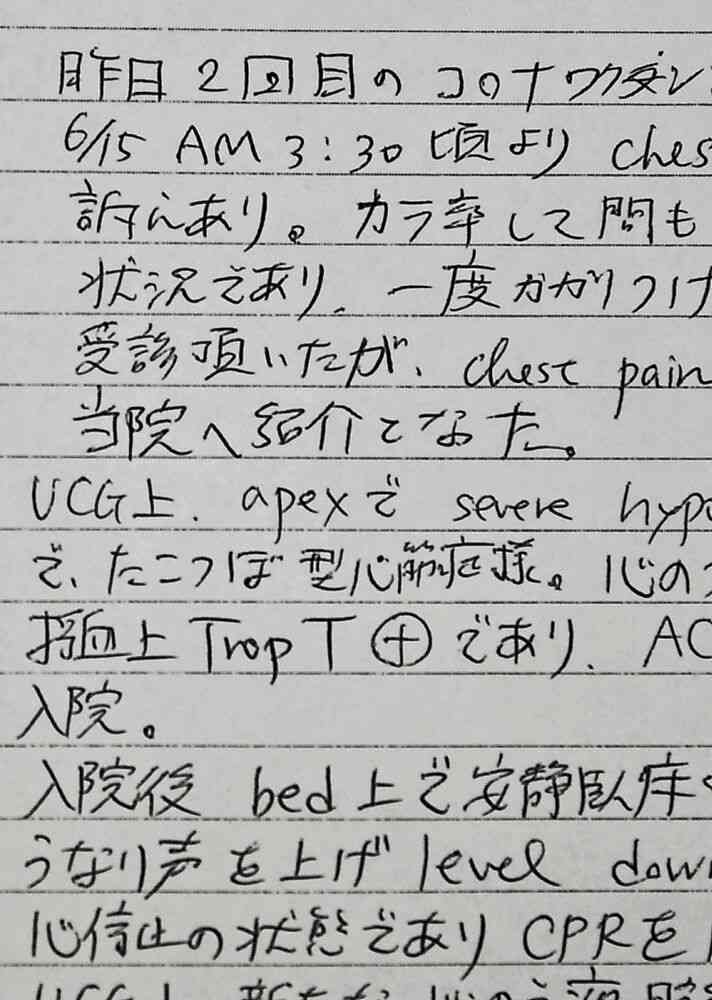 昨日 2回目の コロナワクチン
6/15 AM 3:30 頃より ches
訴えあり。カラ卒して間も
状況であり、一度かかりつけ
受診頂いたが、chest pain
当院へ紹介となった。
UCG上、apexで severe hypo
で、たこつぼ型心筋症様。心の
採血上 Trop T ⊕ であり、AC
入院。
入院後 bed上で安静臥床
うなり声を上げ level down
心停止の状態であり CPRを
UCG上 新たな 心のう液貯